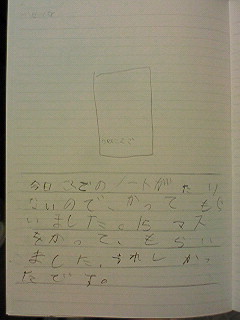 今日こでのノートがたり
ないのでこかってもら
いました。15マス
をかって、もらい
ました、うれしかっ
たです。